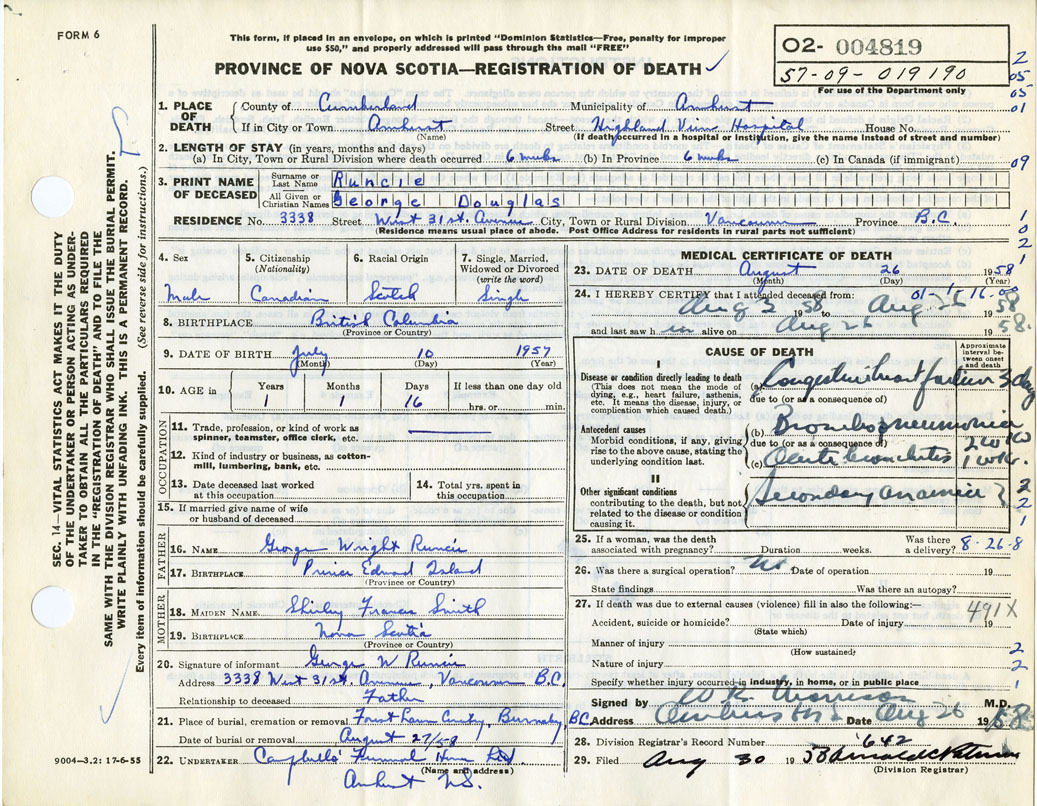 FORM 6
This form, if placed in an envelope, on which is printed "Dominion Statistics—Free, penalty for improper
use $50," and properly addressed will pass through the mail "FREE"
PROVINCE OF NOVA SCOTIA—REGISTRATION OF DEATH ✓
02- 004819
57-09-019190
For use of the Department only
2
05
05
01
1. PLACE OF DEATH { County of Cumberland Municipality of Amherst
If in City or Town Amherst Street Highland View Hospital House No.
(Name) (If death occurred in a hospital or institution, give the name instead of street and number)
2. LENGTH OF STAY (in years, months and days)
(a) In City, Town or Rural Division where death occurred 6 wks (b) In Province 6 wks (c) In Canada (if immigrant) 09
3. PRINT NAME OF DECEASED { Surname or Last Name Runcie
All Given or Christian Names George Douglas
RESIDENCE No. 3338 Street West 31st. Avenue City, Town or Rural Division Vancouver Province B.C.
(Residence means usual place of abode. Post Office Address for residents in rural parts not sufficient)
1
0
2
1
4. Sex
Male
5. Citizenship
(Nationality)
Canadian
6. Racial Origin
Scotch
7. Single, Married,
Widowed or Divorced
(write the word)
Single
8. BIRTHPLACE British Columbia
(Province or Country)
9. DATE OF BIRTH July 10 1957
(Month) (Day) (Year)
10. AGE in Years Months Days If less than one day old
1 1 16 hrs. or min.
OCCUPATION
11. Trade, profession, or kind of work as
spinner, teamster, office clerk, etc.
12. Kind of industry or business, as cotton-
mill, lumbering, bank, etc.
13. Date deceased last worked
at this occupation
14. Total yrs. spent in
this occupation
15. If married give name of wife
or husband of deceased
FATHER
16. NAME George Wright Runcie
17. BIRTHPLACE Prince Edward Island
(Province or Country)
MOTHER
18. MAIDEN NAME Shirley Frances Smith
19. BIRTHPLACE Nova Scotia
(Province or Country)
20. Signature of informant George W Runcie
Address 3338 West 31st. Avenue, Vancouver B.C.
Relationship to deceased Father
21. Place of burial, cremation or removal Forest Lawn Cemetery, Burnaby, B.C.
Date of burial or removal August 27/58
22. UNDERTAKER Campbells' Funeral Home Ltd
(Name and address)
Amherst N.S.
MEDICAL CERTIFICATE OF DEATH
23. DATE OF DEATH August 26 1958
(Month) (Day)
01-1-16-00
24. I HEREBY CERTIFY that I attended deceased from:
Aug 2 1958 to Aug 26 1958
and last saw him alive on Aug 26 1958.
CAUSE OF DEATH
Approximate
interval be-
tween onset
and death
I
Disease or condition directly leading to death
(This does not mean the mode of
dying, e.g., heart failure, asthenia,
etc. It means the disease, injury, or
complication which caused death.)
(a) Congestive heart failure 3 days
due to (or as a consequence of)
Antecedent causes
Morbid conditions, if any, giving
rise to the above cause, stating the
underlying condition last.
(b) Bronchopneumonia
due to (or as a consequence of) 2 wks
(c) Acute bronchitis 1 wk.
II
Other significant conditions
contributing to the death, but not
related to the disease or condition
causing it.
Secondary anaemia
2
2
1
25. If a woman, was the death
associated with pregnancy? Duration weeks. Was there
a delivery? 8-26-8
26. Was there a surgical operation? No Date of operation 19
State findings Was there an autopsy?
27. If death was due to external causes (violence) fill in also the following:— 491X
Accident, suicide or homicide? Date of injury 19
(State which)
Manner of injury 2
(How sustained)
Nature of injury 2
Specify whether injury occurred in industry, in home, or in public place 1
Signed by W R Morrison M.D.
Address Amherst N.S. Date Aug 26 1958
28. Division Registrar's Record Number 642
29. Filed Aug 30 1958
(Division Registrar)
SEC. 14—VITAL STATISTICS ACT MAKES IT THE DUTY
OF THE UNDERTAKER OR PERSON ACTING AS UNDER-
TAKER TO OBTAIN ALL THE PARTICULARS REQUIRED
IN THE "REGISTRATION OF DEATH" AND TO FILE THE
SAME WITH THE DIVISION REGISTRAR WHO SHALL ISSUE THE BURIAL PERMIT.
WRITE PLAINLY WITH UNFADING INK. THIS IS A PERMANENT RECORD.
Every item of information should be carefully supplied. (See reverse side for instructions.)
9004—3.2: 17-6-55